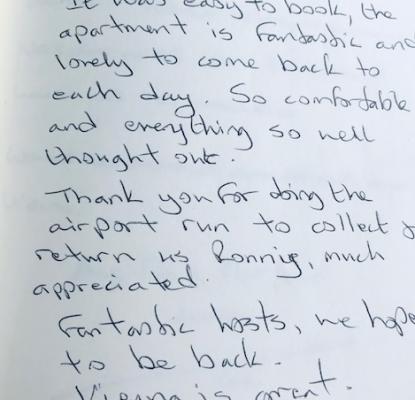 It was easy to book, the
apartment is fantastic and
lovely to come back to
each day. So comfortable
and everything so well
thought out.
Thank you for doing the
airport run to collect &
return us Ronnie, much
appreciated.
Fantastic hosts, we hope
to be back.
Vienna is great.